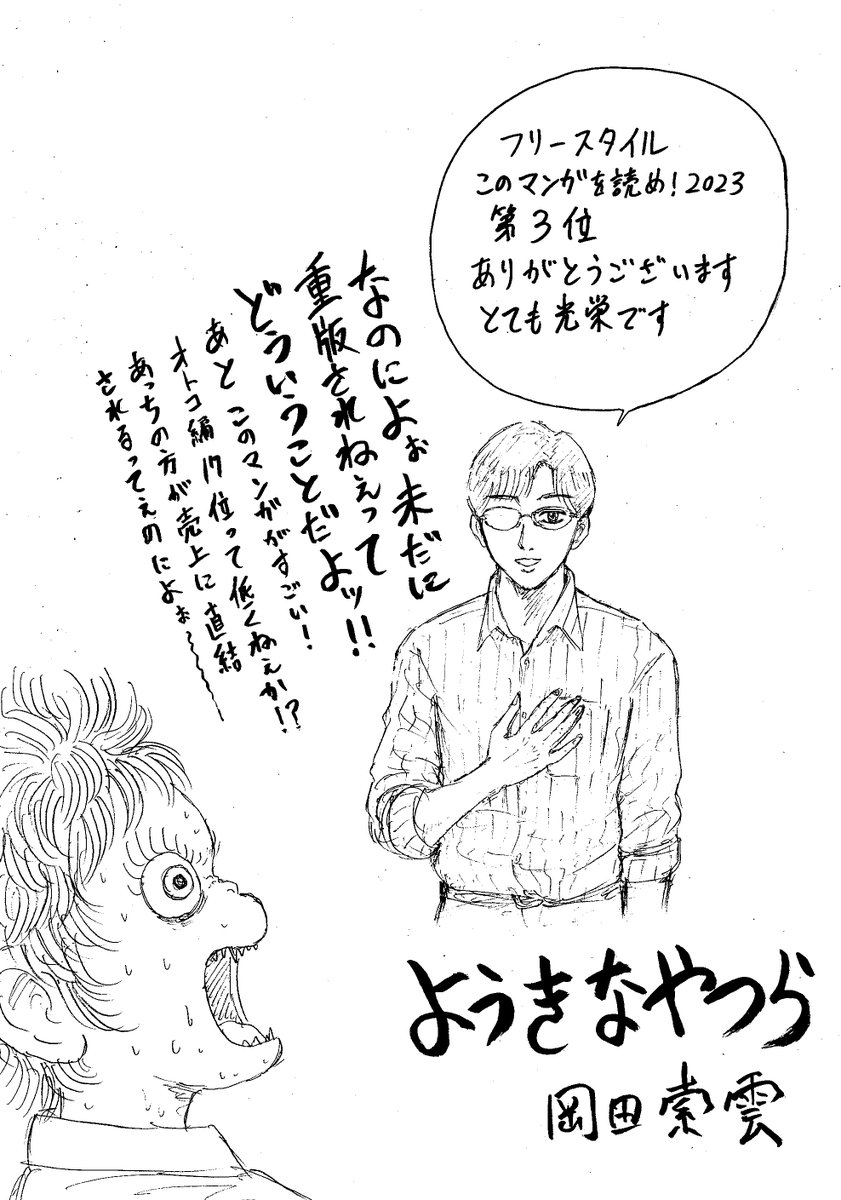 フリースタイル
このマンガを読め!2023
第3位
ありがとうございます
とても光栄です
なのによぉ未だに
重版されねぇって
どういうことだよッ!!
あとこのマンガがすごい!
オトコ編17位って低くねぇか!?
あっちの方が売上に直結
されるってぇのによぉ〜〜〜
ようきなやつら
岡田索雲